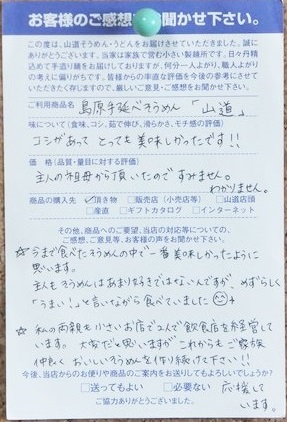 お客様のご感想 聞かせ下さい。
この度は、山道そうめん・うどんをお届けさせていただきました。誠に
ありがとうございます。当家は家族で営む小さい製麺所です。日々丹精
込めて手造り麺をお届けしておりますが、何分一人よがり、職人よがり
の考えに偏りがちです。皆様からの率直な評価を今後の参考にさせてい
ただきたく存じますので、厳しいご意見・ご感想をお聞かせ下さい。
ご利用商品名 島原手延べそうめん「山道」
味について(食味、コシ、茹で伸び、滑らかさ、モチ感の評価)
コシがあって とっても 美味しかったです!!
価 格(品質・量目に対する評価)
主人の祖母から頂いたので すみません。
わかりません。
商品の購入先 ☑頂き物 □販売店(小売店等) □山道店頭
□産直 □ギフトカタログ □インターネット
その他、商品へのご要望、当店の対応等についての、
ご感想、ご意見等、お客様の声をお聞かせ下さい。
☆今まで食べたそうめんの中で一番美味しかったように
思います。
主人もそうめんはあまり好きではないんですが、めずらしく
「うまい!」と言いながら食べていました
☆私の両親も小さいお店で2人で飲食店を経営して
います。大変だと思いますが これからも ご家族
仲良く おいしいそうめんを作り続けて下さい!!
今後、当店からのお便りや商品のご案内をお送りしてもよろしいでしょうか?
□送ってもよい □必要ない 応援して
ご協力ありがとうございました。 います。